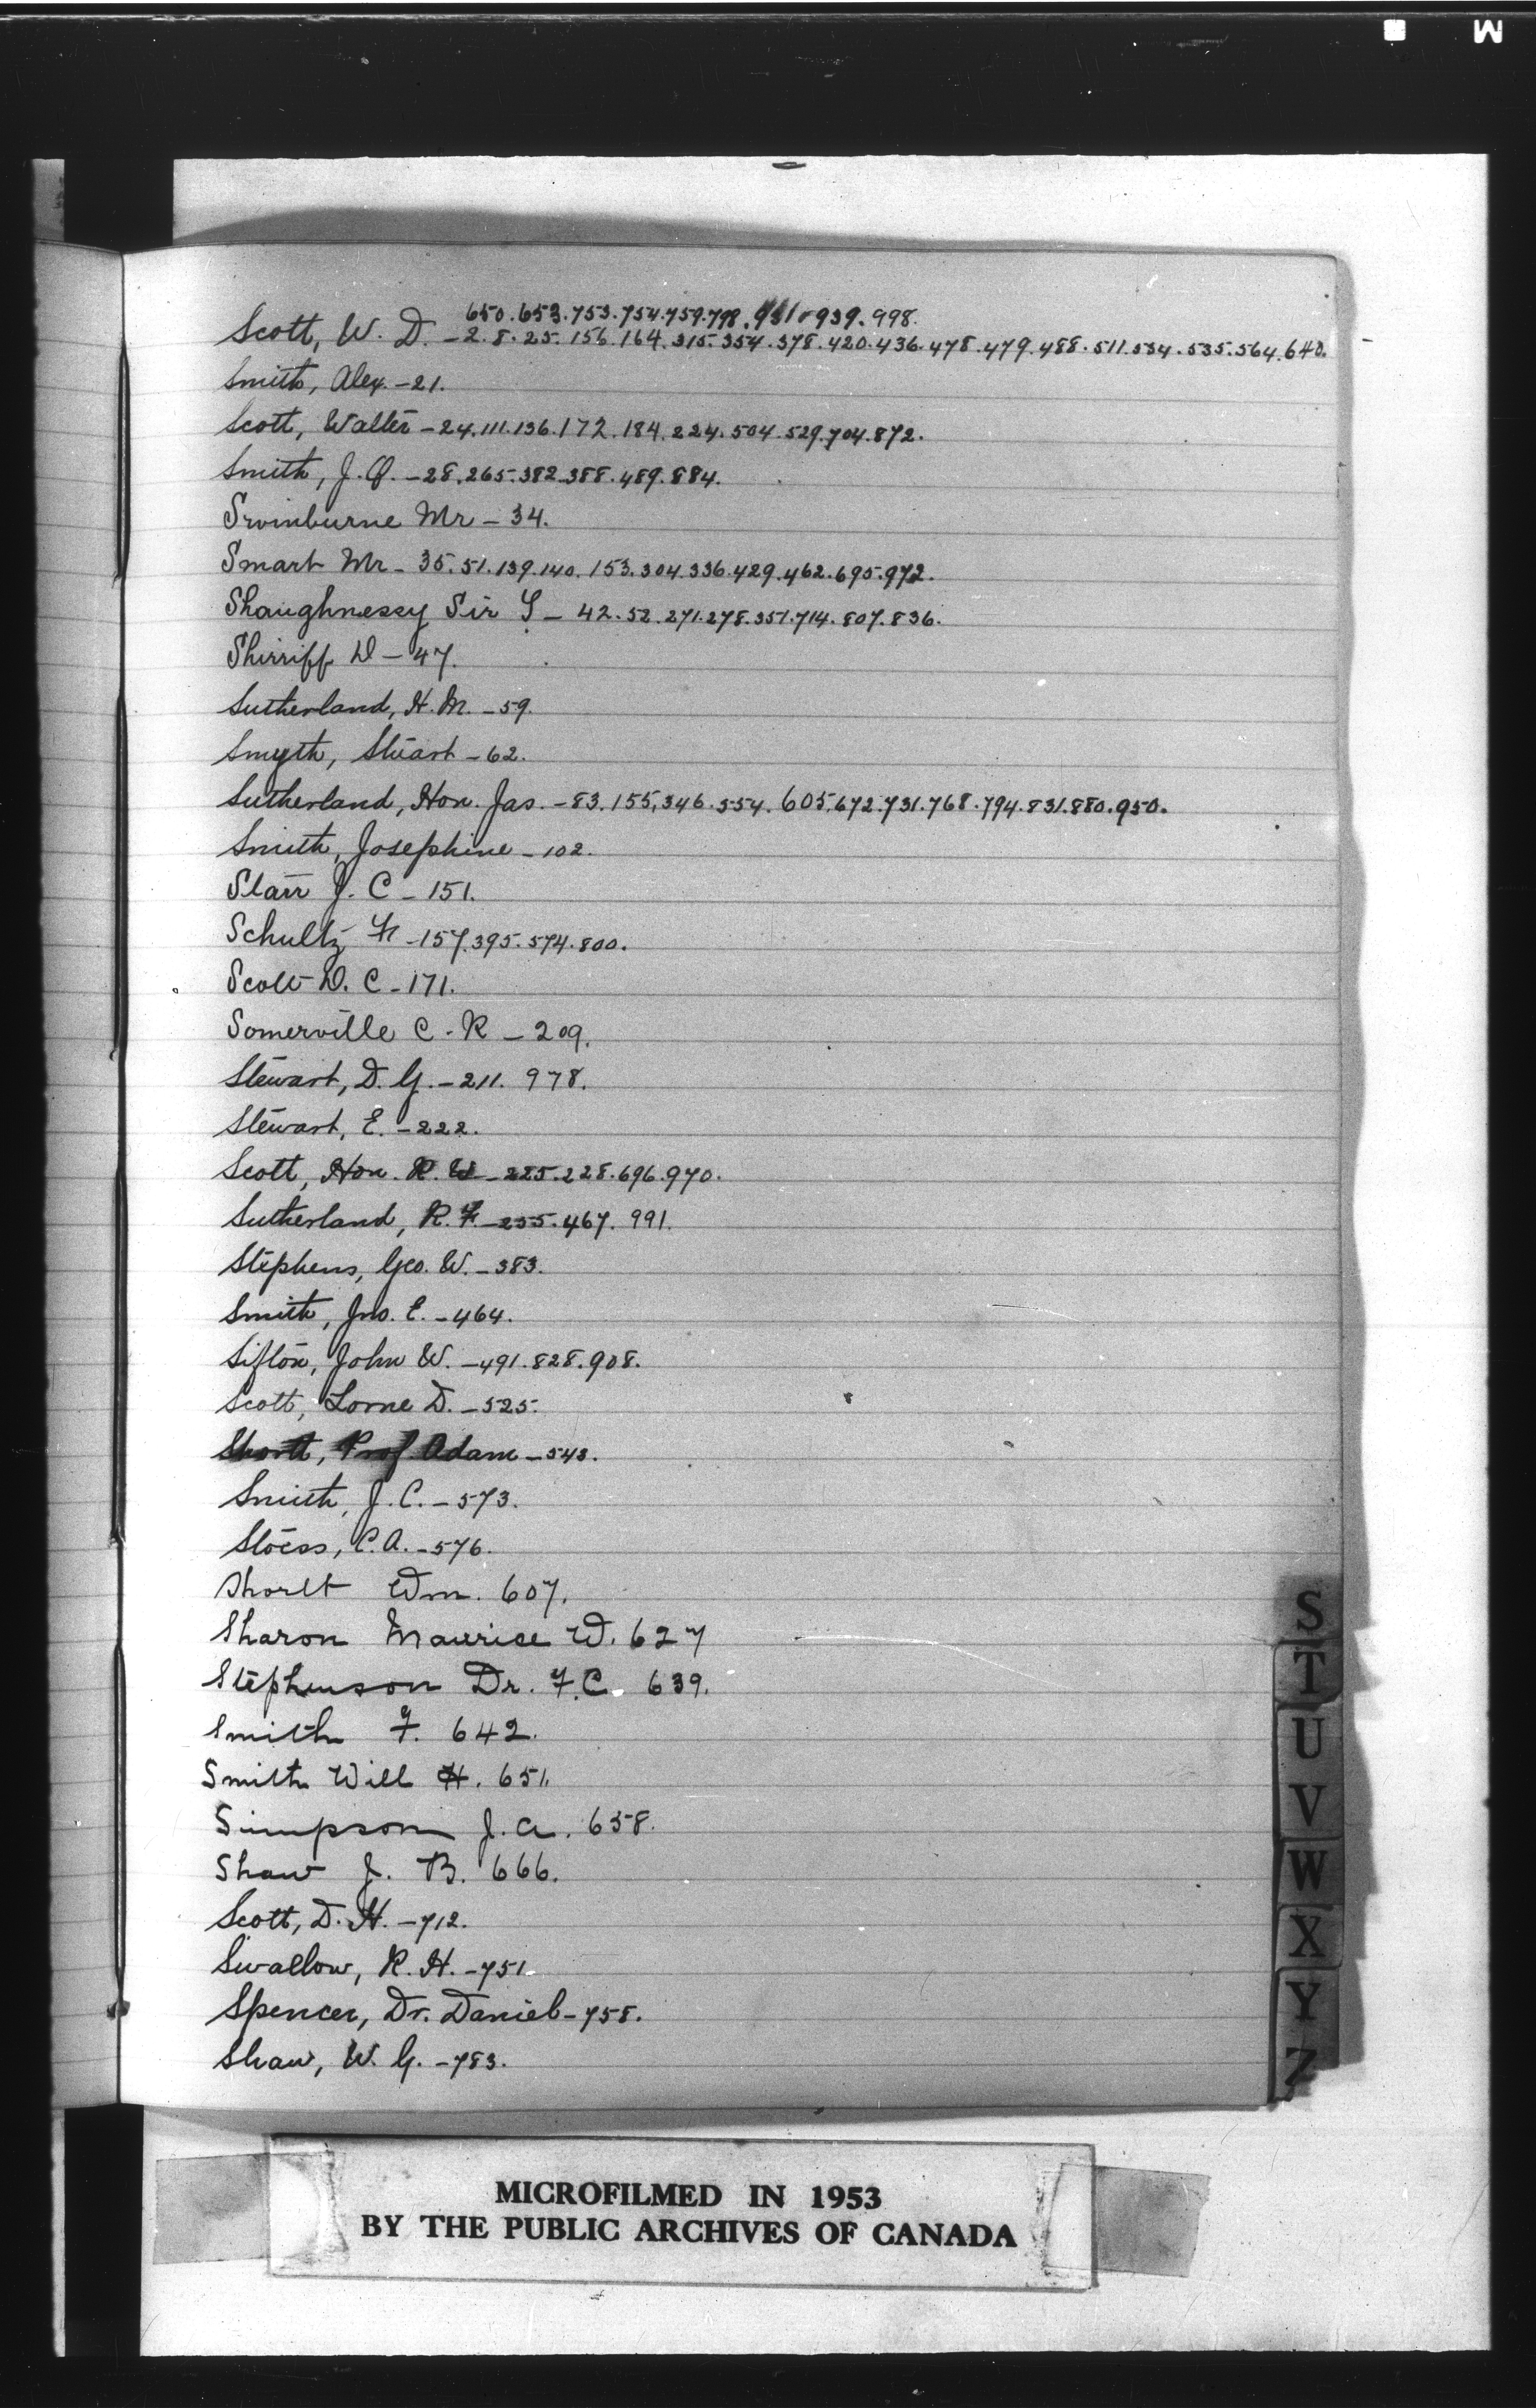 M
650.653.753.754.759.798.931.939.998.
Scott, W. D. - 2.8.25.156.164.315.354.378.420.436.478.479.488.511.534.535.564.640.
Smith, Alex. - 21.
Scott, Walter - 24.111.136.172.184.224.504.529.704.872.
Smith, J. O. - 28.265.382.388.489.884.
Swinburne Mr - 34.
Smart Mr - 35.51.139.140.153.304.336.429.462.695.972.
Shaughnessy Sir T - 42.52.271.278.351.714.807.836.
Shirriff D - 47.
Sutherland, H. M. - 59.
Smyth, Stuart - 62.
Sutherland, Hon. Jas. - 83.155.346.554.605.672.731.768.794.831.880.950.
Smith, Josephine - 102.
Starr J. C - 151.
Schultz Fr - 157.395.574.800.
Scott D. C - 171.
Somerville C. R - 209.
Stewart, D. G. - 211. 978.
Stewart, E. - 222.
Scott, Hon. R. W - 225.228.696.970.
Sutherland, R. F. - 255.467. 991.
Stephens, Geo. W. - 383.
Smith, Jno. E. - 464.
Sifton, John W. - 491.828.908.
Scott, Lorne D. - 525.
Shortt, Prof. Adam - 543.
Smith, J. C. - 573.
Stoess, C. A. - 576.
Shortt Wm. 607.
Sharon Maurice W. 627
Stephenson Dr. F. C. 639.
Smith F. 642.
Smith Will H. 651.
Simpson J. A. 658.
Shaw J. B. 666.
Scott, D. H. - 712.
Swallow, R. H. - 751.
Spencer, Dr. Daniel - 758.
Shaw, W. G. - 783.
S
T
U
V
W
X
Y
Z
MICROFILMED IN 1953
BY THE PUBLIC ARCHIVES OF CANADA